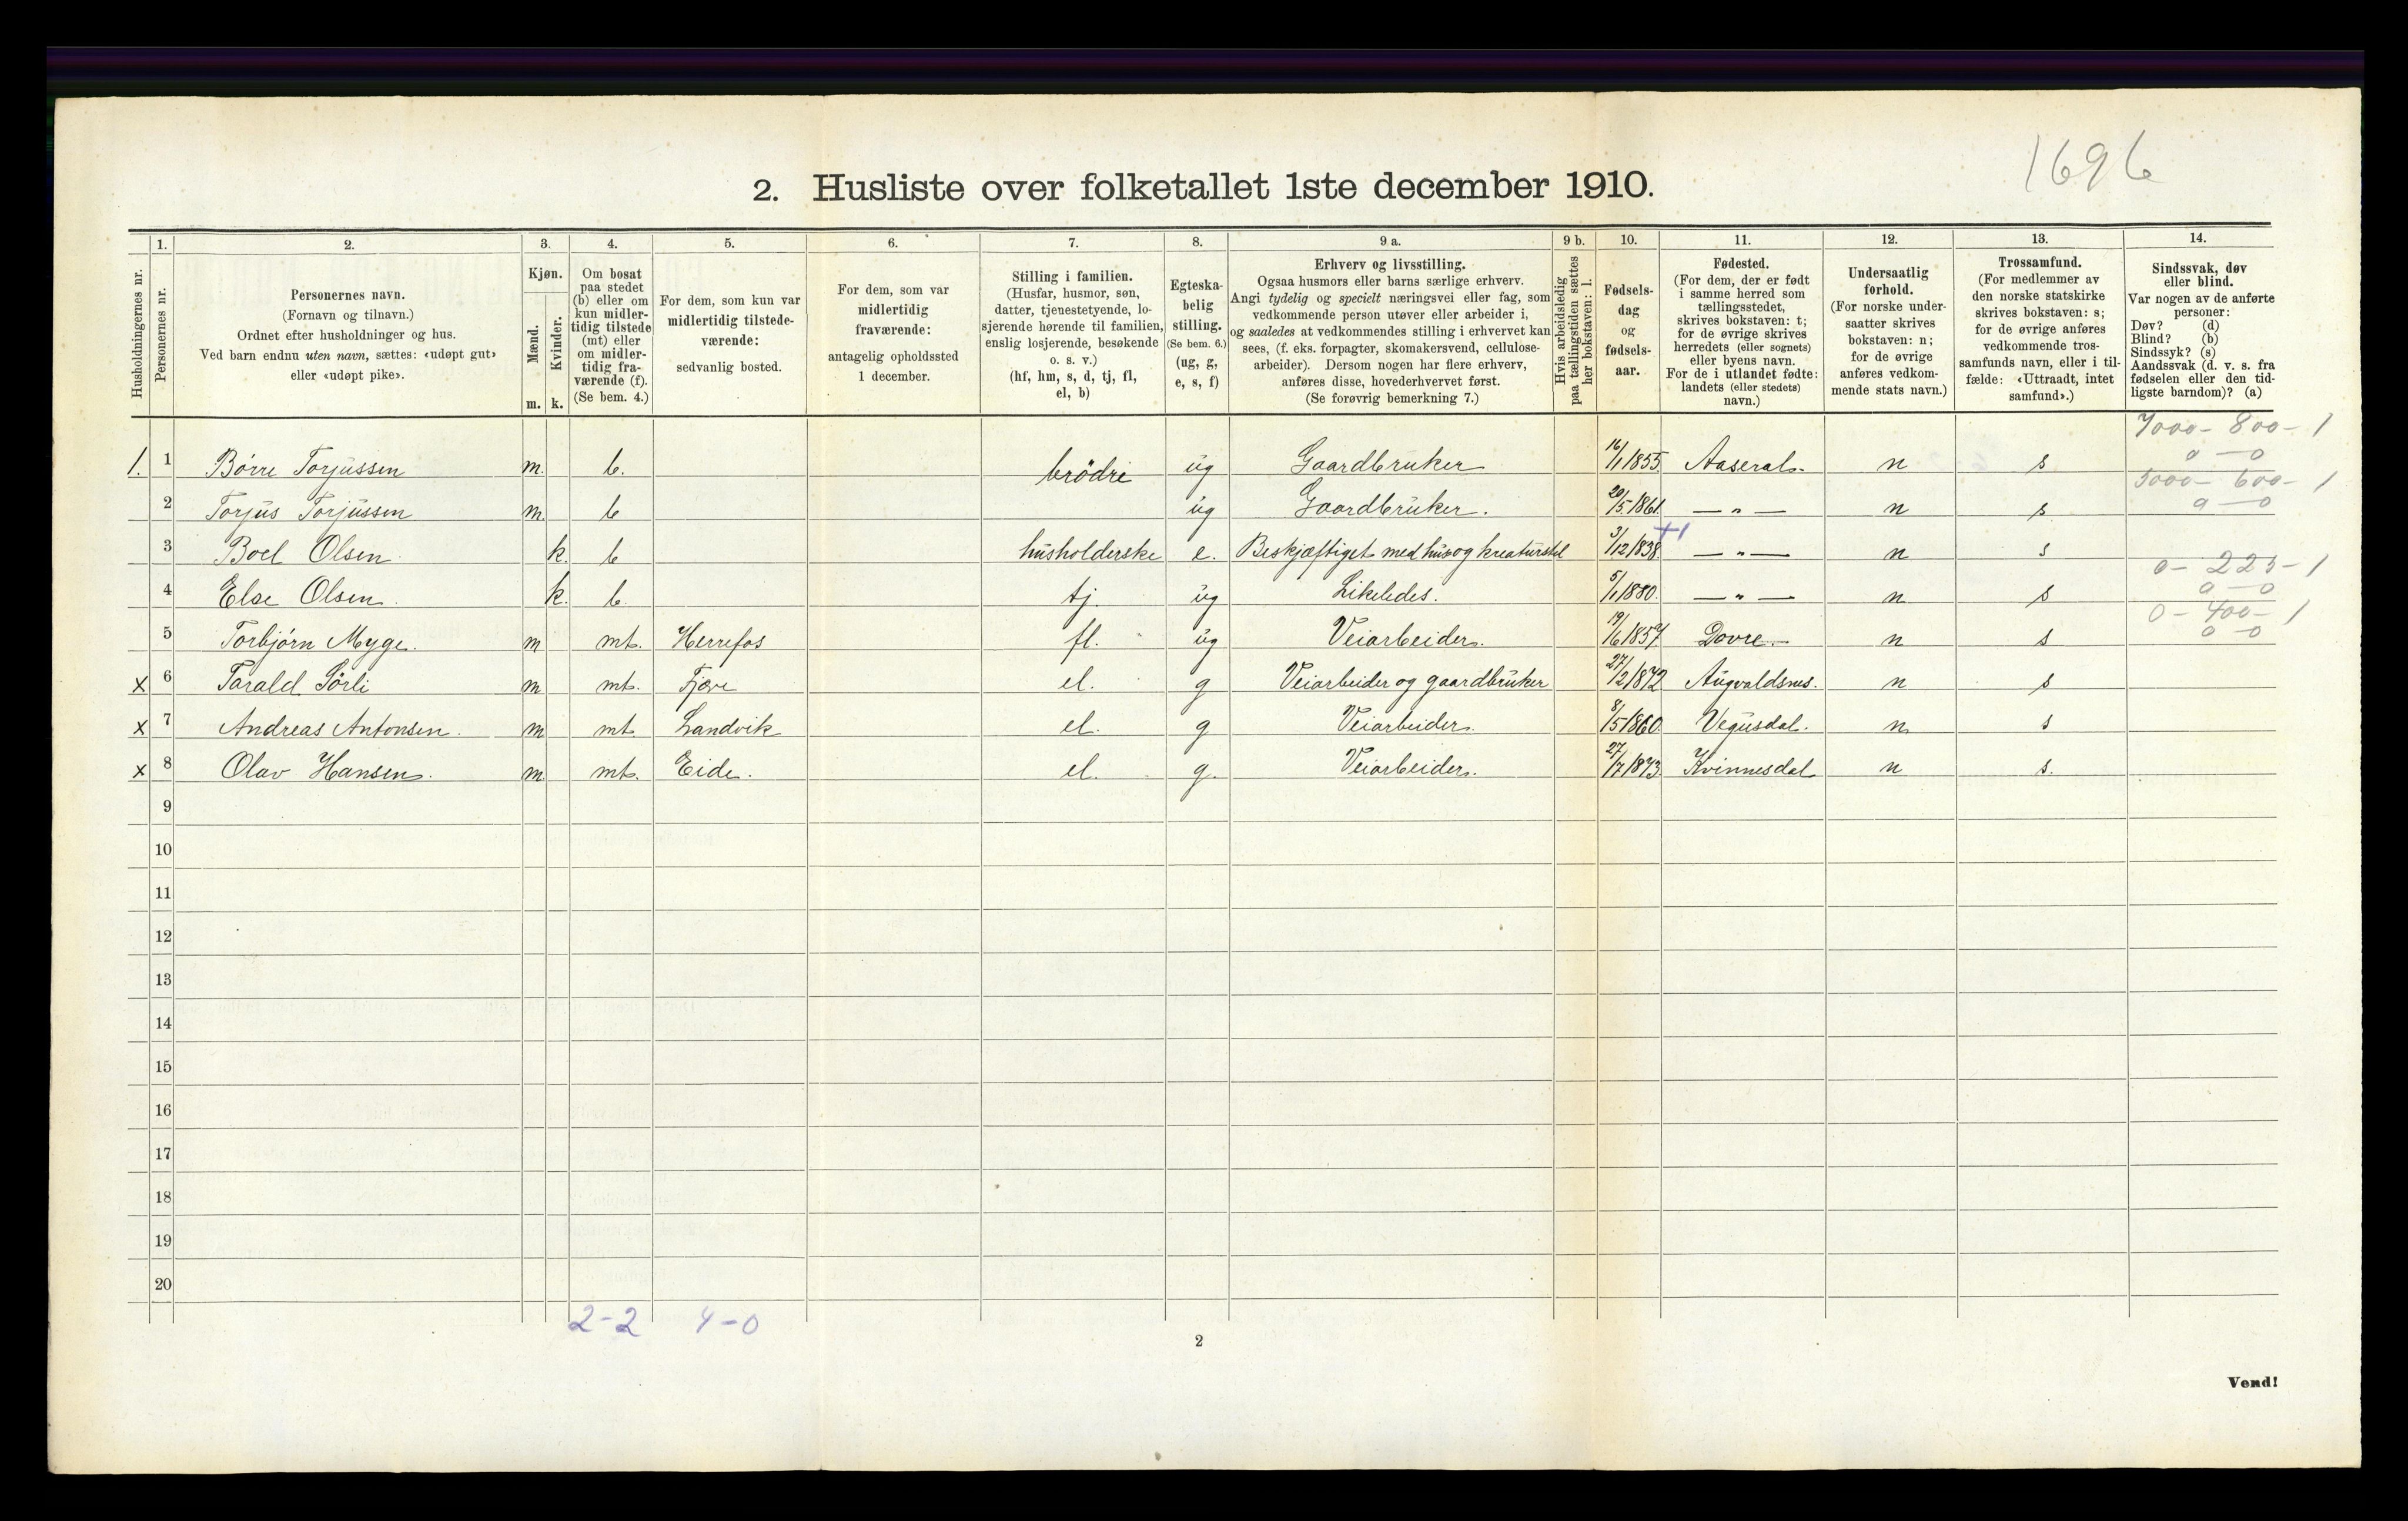 1696
2. Husliste over folketallet 1ste december 1910.
Husholdningernes nr.
1. Personernes nr.
2. Personernes navn.
(Fornavn og tilnavn.)
Ordnet efter husholdninger og hus.
Ved barn endnu uten navn, sættes: «udøpt gut»
eller «udøpt pike».
3. Kjøn.
Mænd. m.
Kvinder. k.
4. Om bosat
paa stedet
(b) eller om
kun midler-
tidig tilstede
(mt) eller
om midler-
tidig fra-
værende (f).
(Se bem. 4.)
5. For dem, som kun var
midlertidig tilstede-
værende:
sedvanlig bosted.
6. For dem, som var
midlertidig
fraværende:
antagelig opholdssted
1 december.
7. Stilling i familien.
(Husfar, husmor, søn,
datter, tjenestetyende, lo-
sjerende hørende til familien,
enslig losjerende, besøkende
o. s. v.)
(hf, hm, s, d, tj, fl,
el, b)
8. Egteska-
belig
stilling.
(Se bem. 6.)
(ug, g,
e, s, f)
9 a. Erhverv og livsstilling.
Ogsaa husmors eller barns særlige erhverv.
Angi tydelig og specielt næringsvei eller fag, som
vedkommende person utøver eller arbeider i,
og saaledes at vedkommendes stilling i erhvervet kan
sees, (f. eks. forpagter, skomakersvend, cellulose-
arbeider). Dersom nogen har flere erhverv,
anføres disse, hovederhvervet først.
(Se forøvrig bemerkning 7.)
9 b. Hvis arbeidsledig
paa tællingstiden sættes
her bokstaven: l.
10. Fødsels-
dag
og
fødsels-
aar.
11. Fødested.
(For dem, der er født
i samme herred som
tællingsstedet,
skrives bokstaven: t;
for de øvrige skrives
herredets (eller sognets)
eller byens navn.
For de i utlandet fødte:
landets (eller stedets)
navn.)
12. Undersaatlig
forhold.
(For norske under-
saatter skrives
bokstaven: n;
for de øvrige
anføres vedkom-
mende stats navn.)
13. Trossamfund.
(For medlemmer av
den norske statskirke
skrives bokstaven: s;
for de øvrige anføres
vedkommende tros-
samfunds navn, eller i til-
fælde: «Uttraadt, intet
samfund».)
14. Sindssvak, døv
eller blind.
Var nogen av de anførte
personer:
Døv? (d)
Blind? (b)
Sindssyk? (s)
Aandssvak (d. v. s. fra
fødselen eller den tid-
ligste barndom)? (a)
7000 - 800 - 1
1. 1 Börre Torjussen m. b. brödre ug Gaardbruker 16/1 1855. Aaseral. n s 0 - 0
3000 - 600 - 1
2 Torjus Torjussen m b ug Gaardbruker. 20/5 1861. — " — n s 0 - 0
3 Boel Olsen. k. b husholderske e. Beskjæftiget med hus og kreaturstel 3/12 1838. — " — n s
0 - 225 - 1
4 Else Olsen. k. b. tj. ug Likeledes. 5/1 1880. — " — n s 0 - 0
0 - 400 - 1
5 Torbjörn Myge. m mt. Herrefos fl. ug Veiarbeider. 19/6 1857. Dovre. n s 0 - 0
x 6 Tarald Sörli m mt. Fjære el. g Veiarbeider og gaardbruker 27/2 1872 Augvaldsnes. n s
x 7 Andreas Antonsen. m mt. Landvik el. g Veiarbeider. 8/5 1860. Vegusdal. n s
x 8 Olav Hansen. m mt. Eide. el. g. Veiarbeider. 27/7 1873. Kvinnesdal n s.
9
10
11
12
13
14
15
16
17
18
19
20
2-2 4-0
2
Vend!